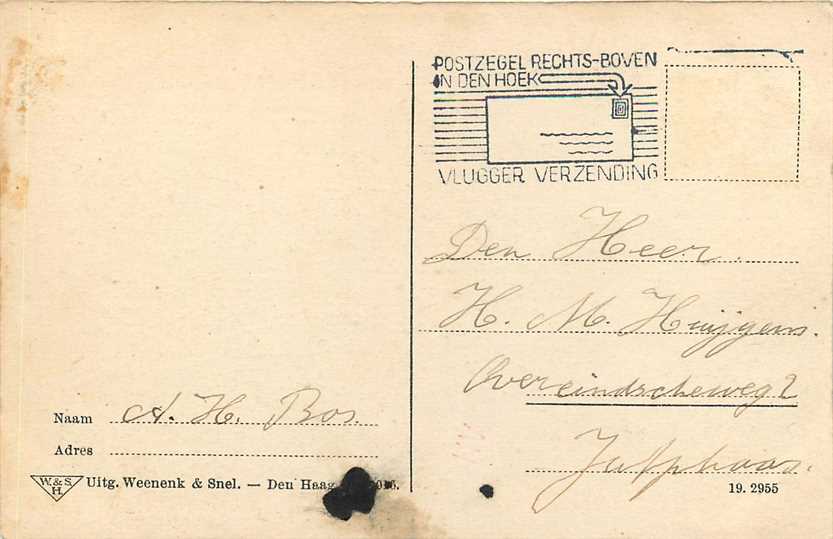 POSTZEGEL RECHTS-BOVEN
IN DEN HOEK
VLUGGER VERZENDING
Den Heer.
H. M. Huijgens.
Overeindscheweg 2
Jutphaas.
Naam A. H. Bos.
Adres
W. & S.
H.
Uitg. Weenenk & Snel. — Den Haag
19. 2955